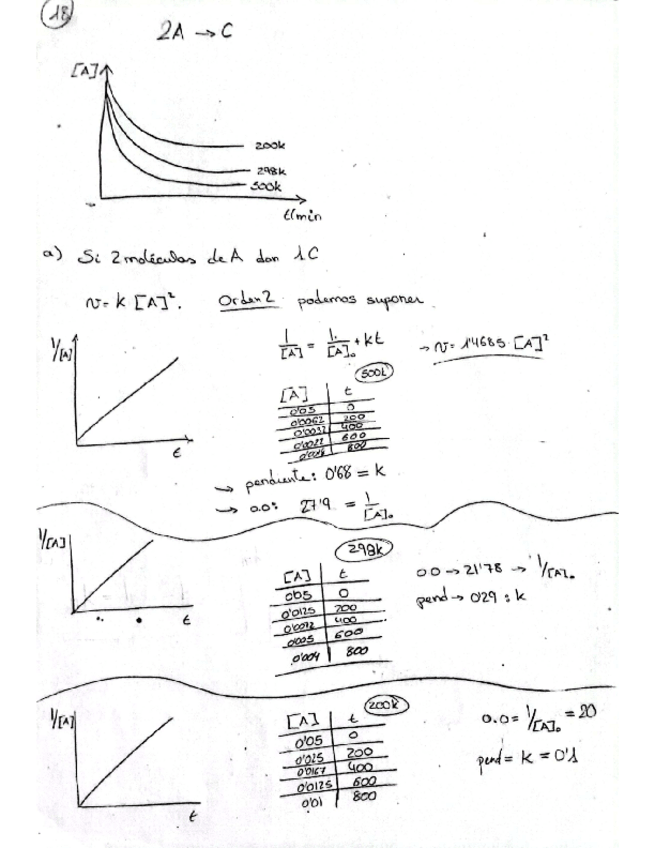 18
2A → C
[A]
200k
298k
500k
t/min
a) Si 2 moléculas de A dan 1C
v = k [A]². Orden 2 podemos suponer
1/[A]
t
1/[A] = 1/[A]₀ + kt
→ v = 1'4685·[A]²
500k
[A] t
0'05 0
0'0062 200
0'0032 400
0'0022 600
800
→ pendiente: 0'68 = k
→ o.o: 27'9 = 1/[A]₀
1/[A]
t
298k
[A] t
0'05 0
0'0125 200
0'0072 400
0'005 600
0'004 800
0.0 → 21'78 → 1/[A]₀
pend → 0'29 : k
1/[A]
t
200k
[A] t
0'05 0
0'025 200
0'0167 400
0'0125 600
0'01 800
0.0 = 1/[A]₀ = 20
pend = k = 0'1